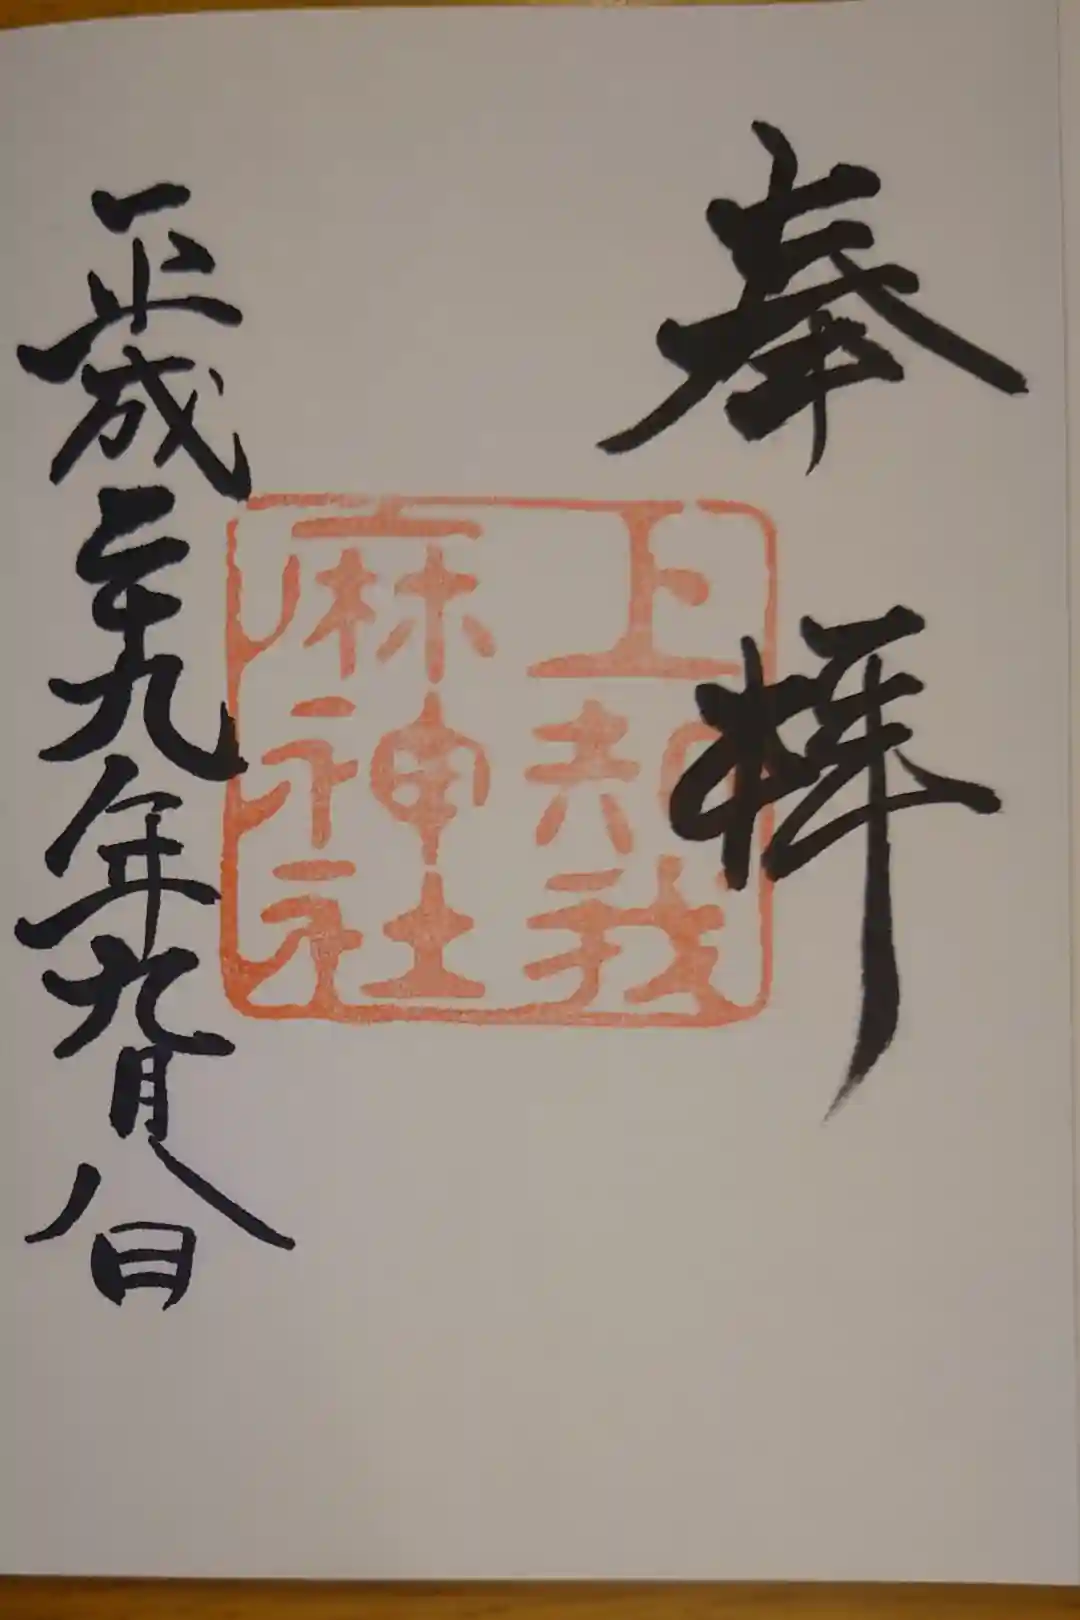 奉拝
上知我
麻神社
平成二十九年九月八日